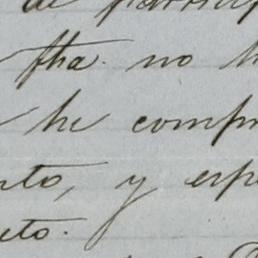 de particip
fha. no h
he comp
nto, y esp
eto.